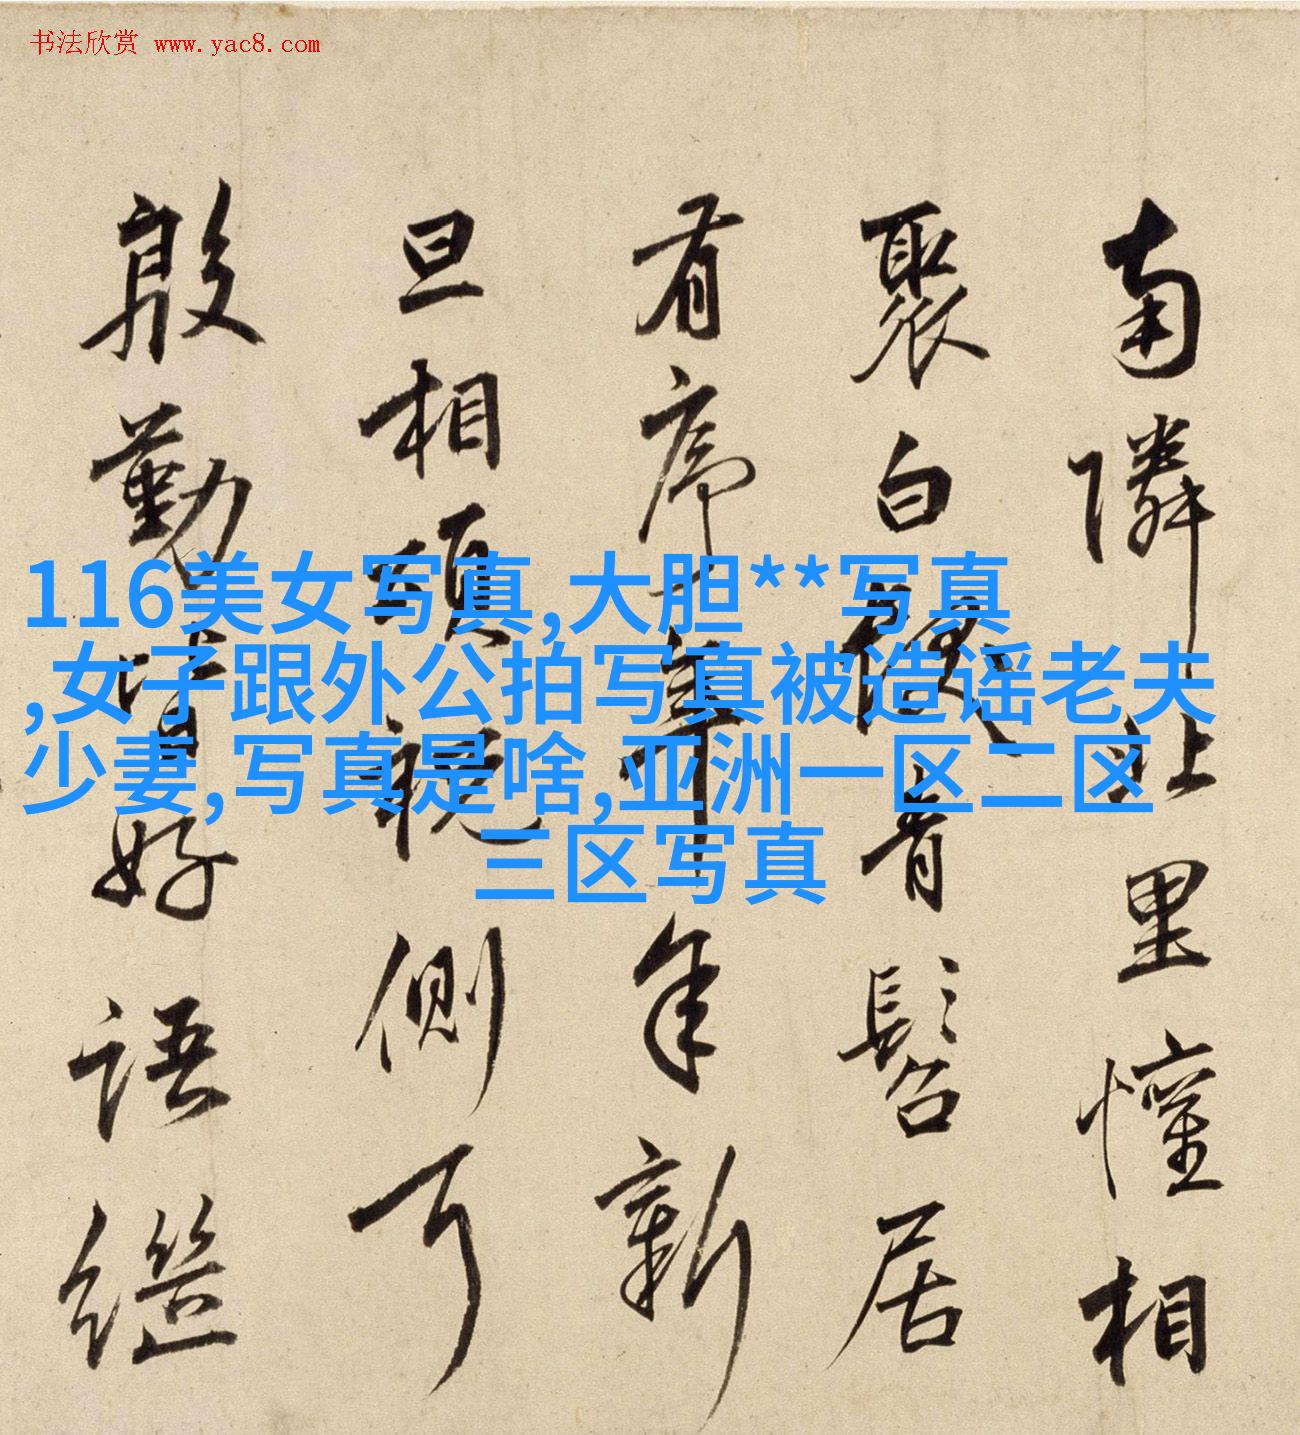 书法欣赏 www.yac8.com
116美女写真,大胆**写真
,女子跟外公拍写真被造谣老夫
少妻,写真是啥,亚洲一区二区
三区写真
南隣北里懽相
聚白青髫居
有序一年年新
旦相頌祝側
殷勤皆好語繼